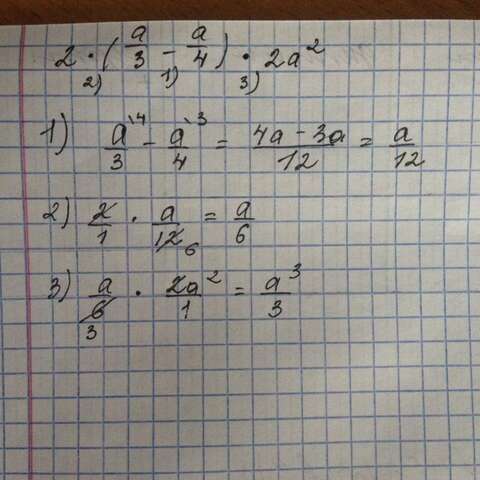 2 · (a/3 - a/4) · 2a²
2) 1) 3)
1) a`4/3 - a`3/4 = 4a - 3a/12 = a/12
2) 2/1 · a/12 6 = a/6
3) a/6 3 · 2a²/1 = a³/3